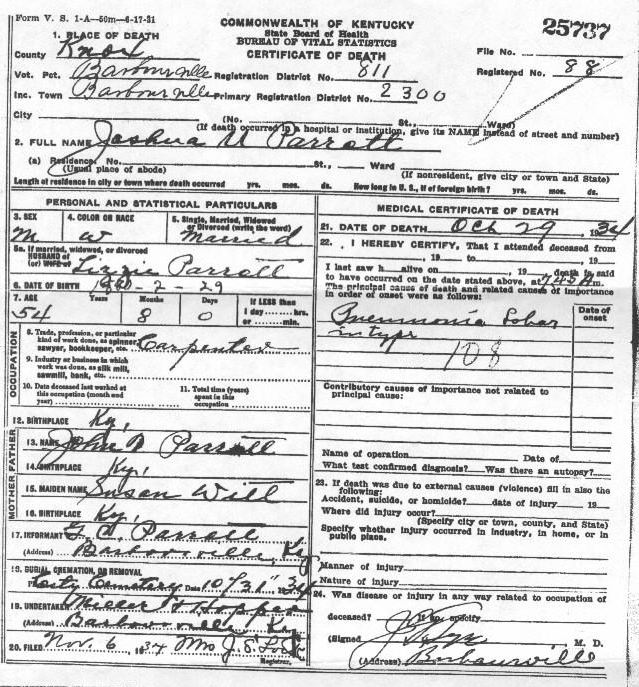 Form V. S. 1-A—50m—6-17-31
COMMONWEALTH OF KENTUCKY
State Board of Health
BUREAU OF VITAL STATISTICS
CERTIFICATE OF DEATH
25737
1. PLACE OF DEATH
County Knox
File No.
Vot. Pct. Barbourville Registration District No. 811
Registered No. 88
Inc. Town Barbourville Primary Registration District No. 2300
City (No. St., Ward)
(If death occurred in a hospital or institution, give its NAME instead of street and number)
2. FULL NAME Joshua Parrott
(a) Residence. No. St., Ward
(Usual place of abode) (If nonresident, give city or town and State)
Length of residence in city or town where death occurred yrs. mos. ds. How long in U. S., if of foreign birth? yrs. mos. ds.
PERSONAL AND STATISTICAL PARTICULARS
3. SEX 4. COLOR OR RACE 5. Single, Married, Widowed
or Divorced (write the word)
M W Married
5a. If married, widowed, or divorced
HUSBAND of
(or) WIFE of Lizzie Parrott
6. DATE OF BIRTH 2-29
7. AGE Years Months Days If LESS than
1 day hrs.
or min.
54 8 0
OCCUPATION
8. Trade, profession, or particular
kind of work done, as spinner,
sawyer, bookkeeper, etc. Carpenter
9. Industry or business in which
work was done, as silk mill,
sawmill, bank, etc.
10. Date deceased last worked at
this occupation (month and
year)
11. Total time (years)
spent in this
occupation
12. BIRTHPLACE Ky,
FATHER
13. NAME John Parrott
14. BIRTHPLACE Ky,
MOTHER
15. MAIDEN NAME Susan Will
16. BIRTHPLACE Ky,
17. INFORMANT Parrott
(Address) Barbourville, Ky
18. BURIAL, CREMATION, OR REMOVAL
Cemetery Date 10/31" 34
19. UNDERTAKER Miller & Hopper
(Address) Barbourville, Ky
20. FILED Nov. 6 1934 Mrs J. S.
Registrar.
MEDICAL CERTIFICATE OF DEATH
21. DATE OF DEATH Oct 29, 1934
22. I HEREBY CERTIFY, That I attended deceased from
, 19 to , 19
I last saw h alive on , 19 death is said
to have occurred on the date stated above, at 745 A m.
The principal cause of death and related causes of importance
in order of onset were as follows:
Date of
onset
Pneumonia Lobar
in type
108
Contributory causes of importance not related to
principal cause:
Name of operation Date of
What test confirmed diagnosis? Was there an autopsy?
23. If death was due to external causes (violence) fill in also the
following:
Accident, suicide, or homicide? date of injury 19
Where did injury occur?
(Specify city or town, county, and State)
Specify whether injury occurred in industry, in home, or in
public place.
Manner of injury
Nature of injury
24. Was disease or injury in any way related to occupation of
deceased? If so, specify
(Signed M. D.
(Address) Barbourville